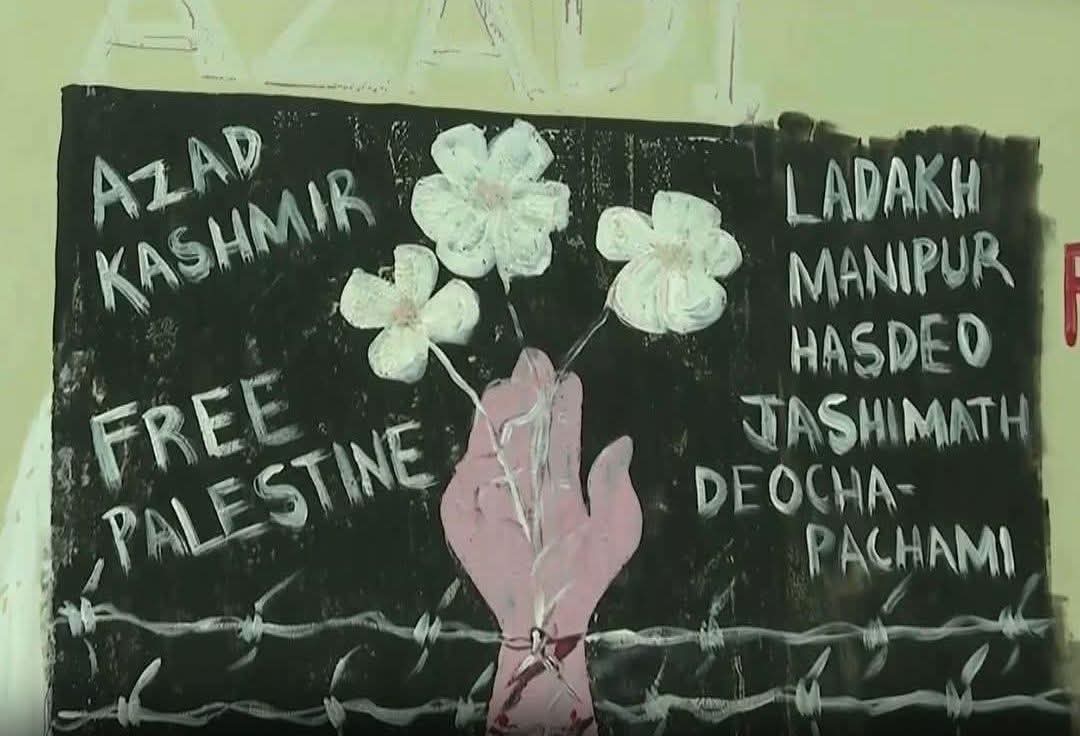 AZADI
AZAD
KASHMIR
FREE
PALESTINE
LADAKH
MANIPUR
HASDEO
JASHIMATH
DEOCHA-
PACHAMI